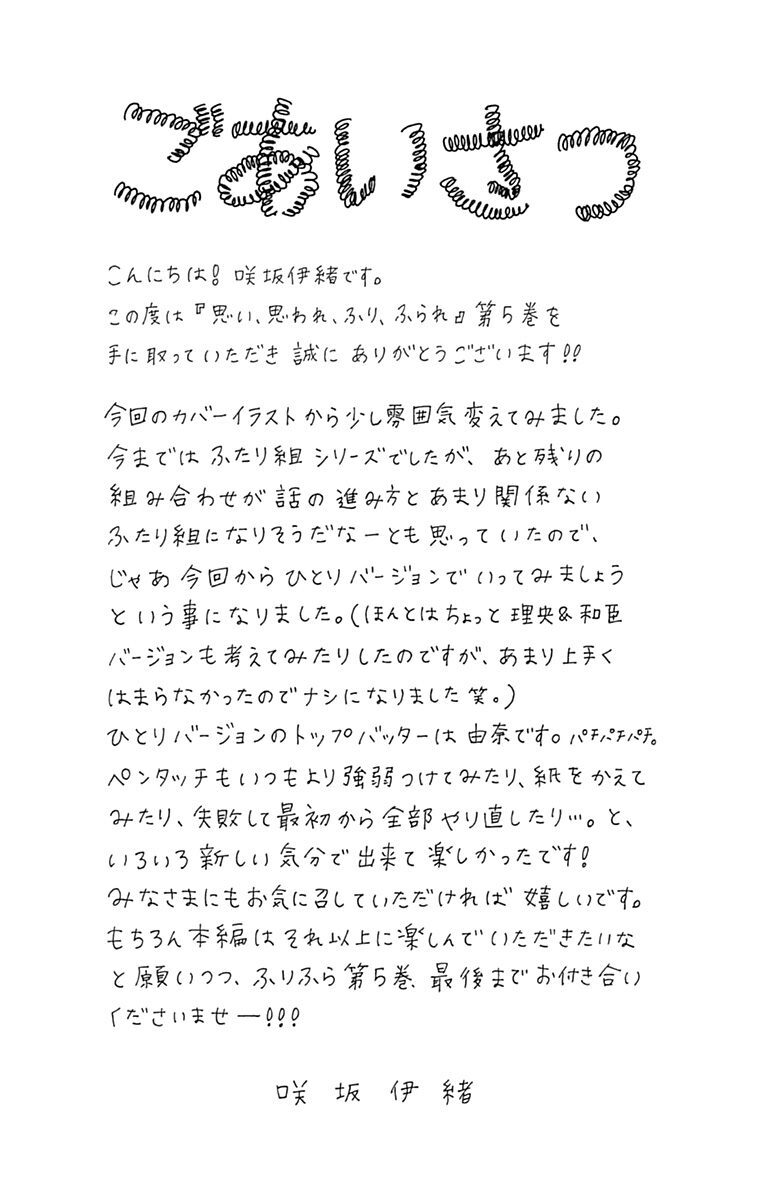 ごあいさつ
こんにちは! 咲坂伊緒です。
この度は『思い、思われ、ふり、ふられ』第5巻を
手に取っていただき 誠に ありがとうございます!!
今回のカバーイラストから少し雰囲気変えてみました。
今までは ふたり組 シリーズでしたが、あと残りの
組み合わせが 話の 進み方と あまり関係ない
ふたり組になりそうだなーとも思っていたので、
じゃあ 今回から ひとりバージョンで いってみましょう
という事になりました。(ほんとはちょっと 理央&和臣
バージョンも考えてみたりしたのですが、あまり上手く
はまらなかったのでナシになりました 笑。)
ひとりバージョンのトップバッターは 由奈です。パチパチパチ。
ペンタッチもいつもより強弱つけてみたり、紙をかえて
みたり、失敗して最初から全部やり直したり…。と、
いろいろ新しい気分で出来て楽しかったです!
みなさまにもお気に召していただければ 嬉しいです。
もちろん本編はそれ以上に楽しんでいただきたいな
と願いつつ、ふりふら第5巻、最後までお付き合い
くださいませ―!!!
咲坂伊緒